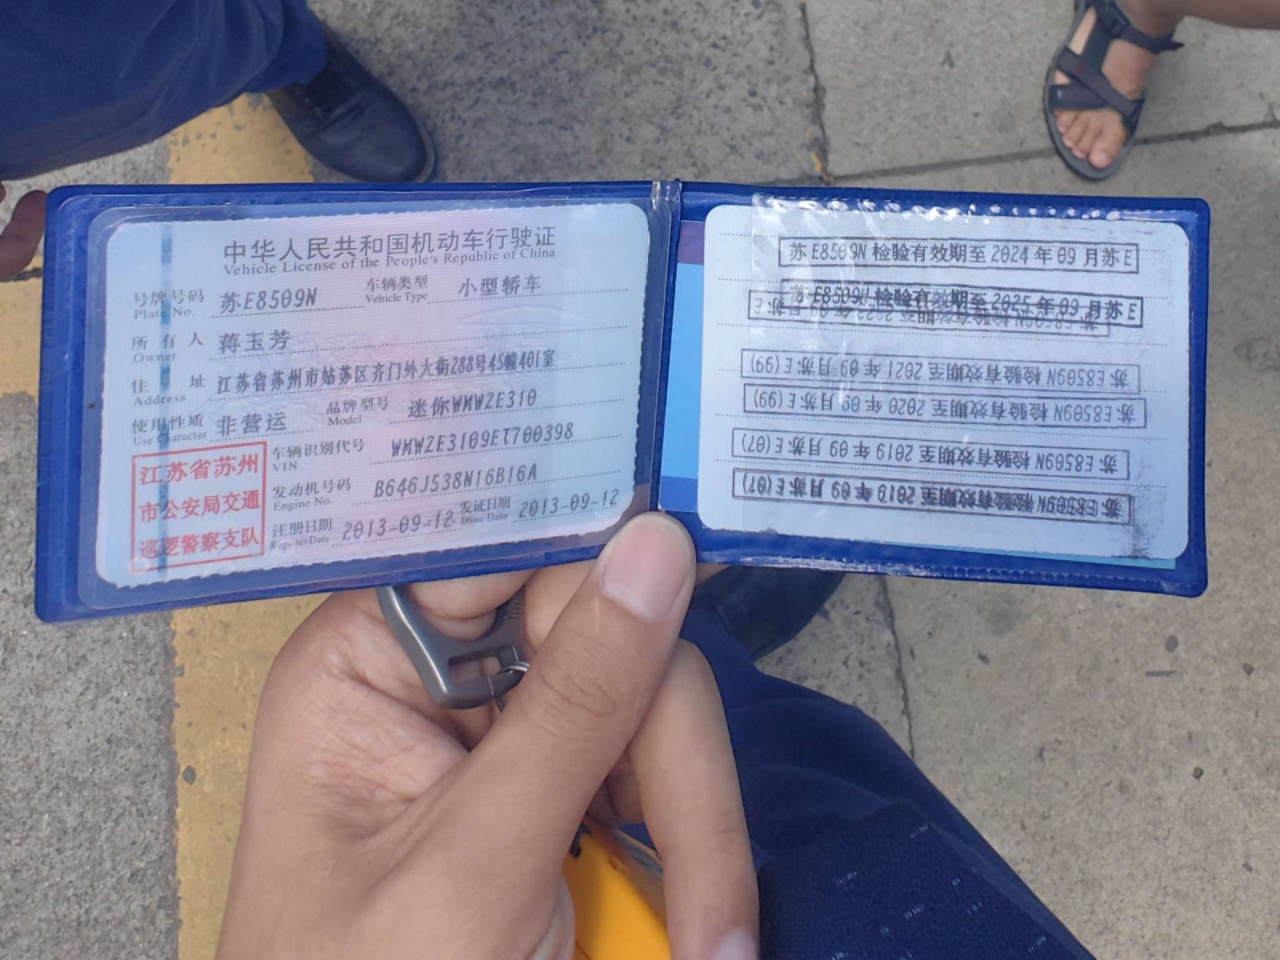 中华人民共和国机动车行驶证
Vehicle License of the People's Republic of China
号牌号码 苏E8509N 车辆类型 小型轿车
Plate No. Vehicle Type
所有人 蒋玉芳
Owner
住址 江苏省苏州市姑苏区齐门外大街288号45幢401室
Address
使用性质 非营运 品牌型号 迷你WMWZE310
Use Character Model
车辆识别代号 WMWZE3109ET700398
VIN
发动机号码 B646J538N16B16A
Engine No.
注册日期 2013-09-12 发证日期 2013-09-12
Register Date Issue Date
江苏省苏州
市公安局交通
巡逻警察支队
苏E8509N 检验有效期至 2024 年 09 月苏E
苏E8509N 检验有效期至 2025 年 09 月苏E
苏E8509N 检验有效期至 2021 年 09 月苏E (99)
苏E8509N 检验有效期至 2020 年 09 月苏E (99)
苏E8509N 检验有效期至 2019 年 09 月苏E (07)
苏E8509N 检验有效期至 2019 年 09 月苏E (07)